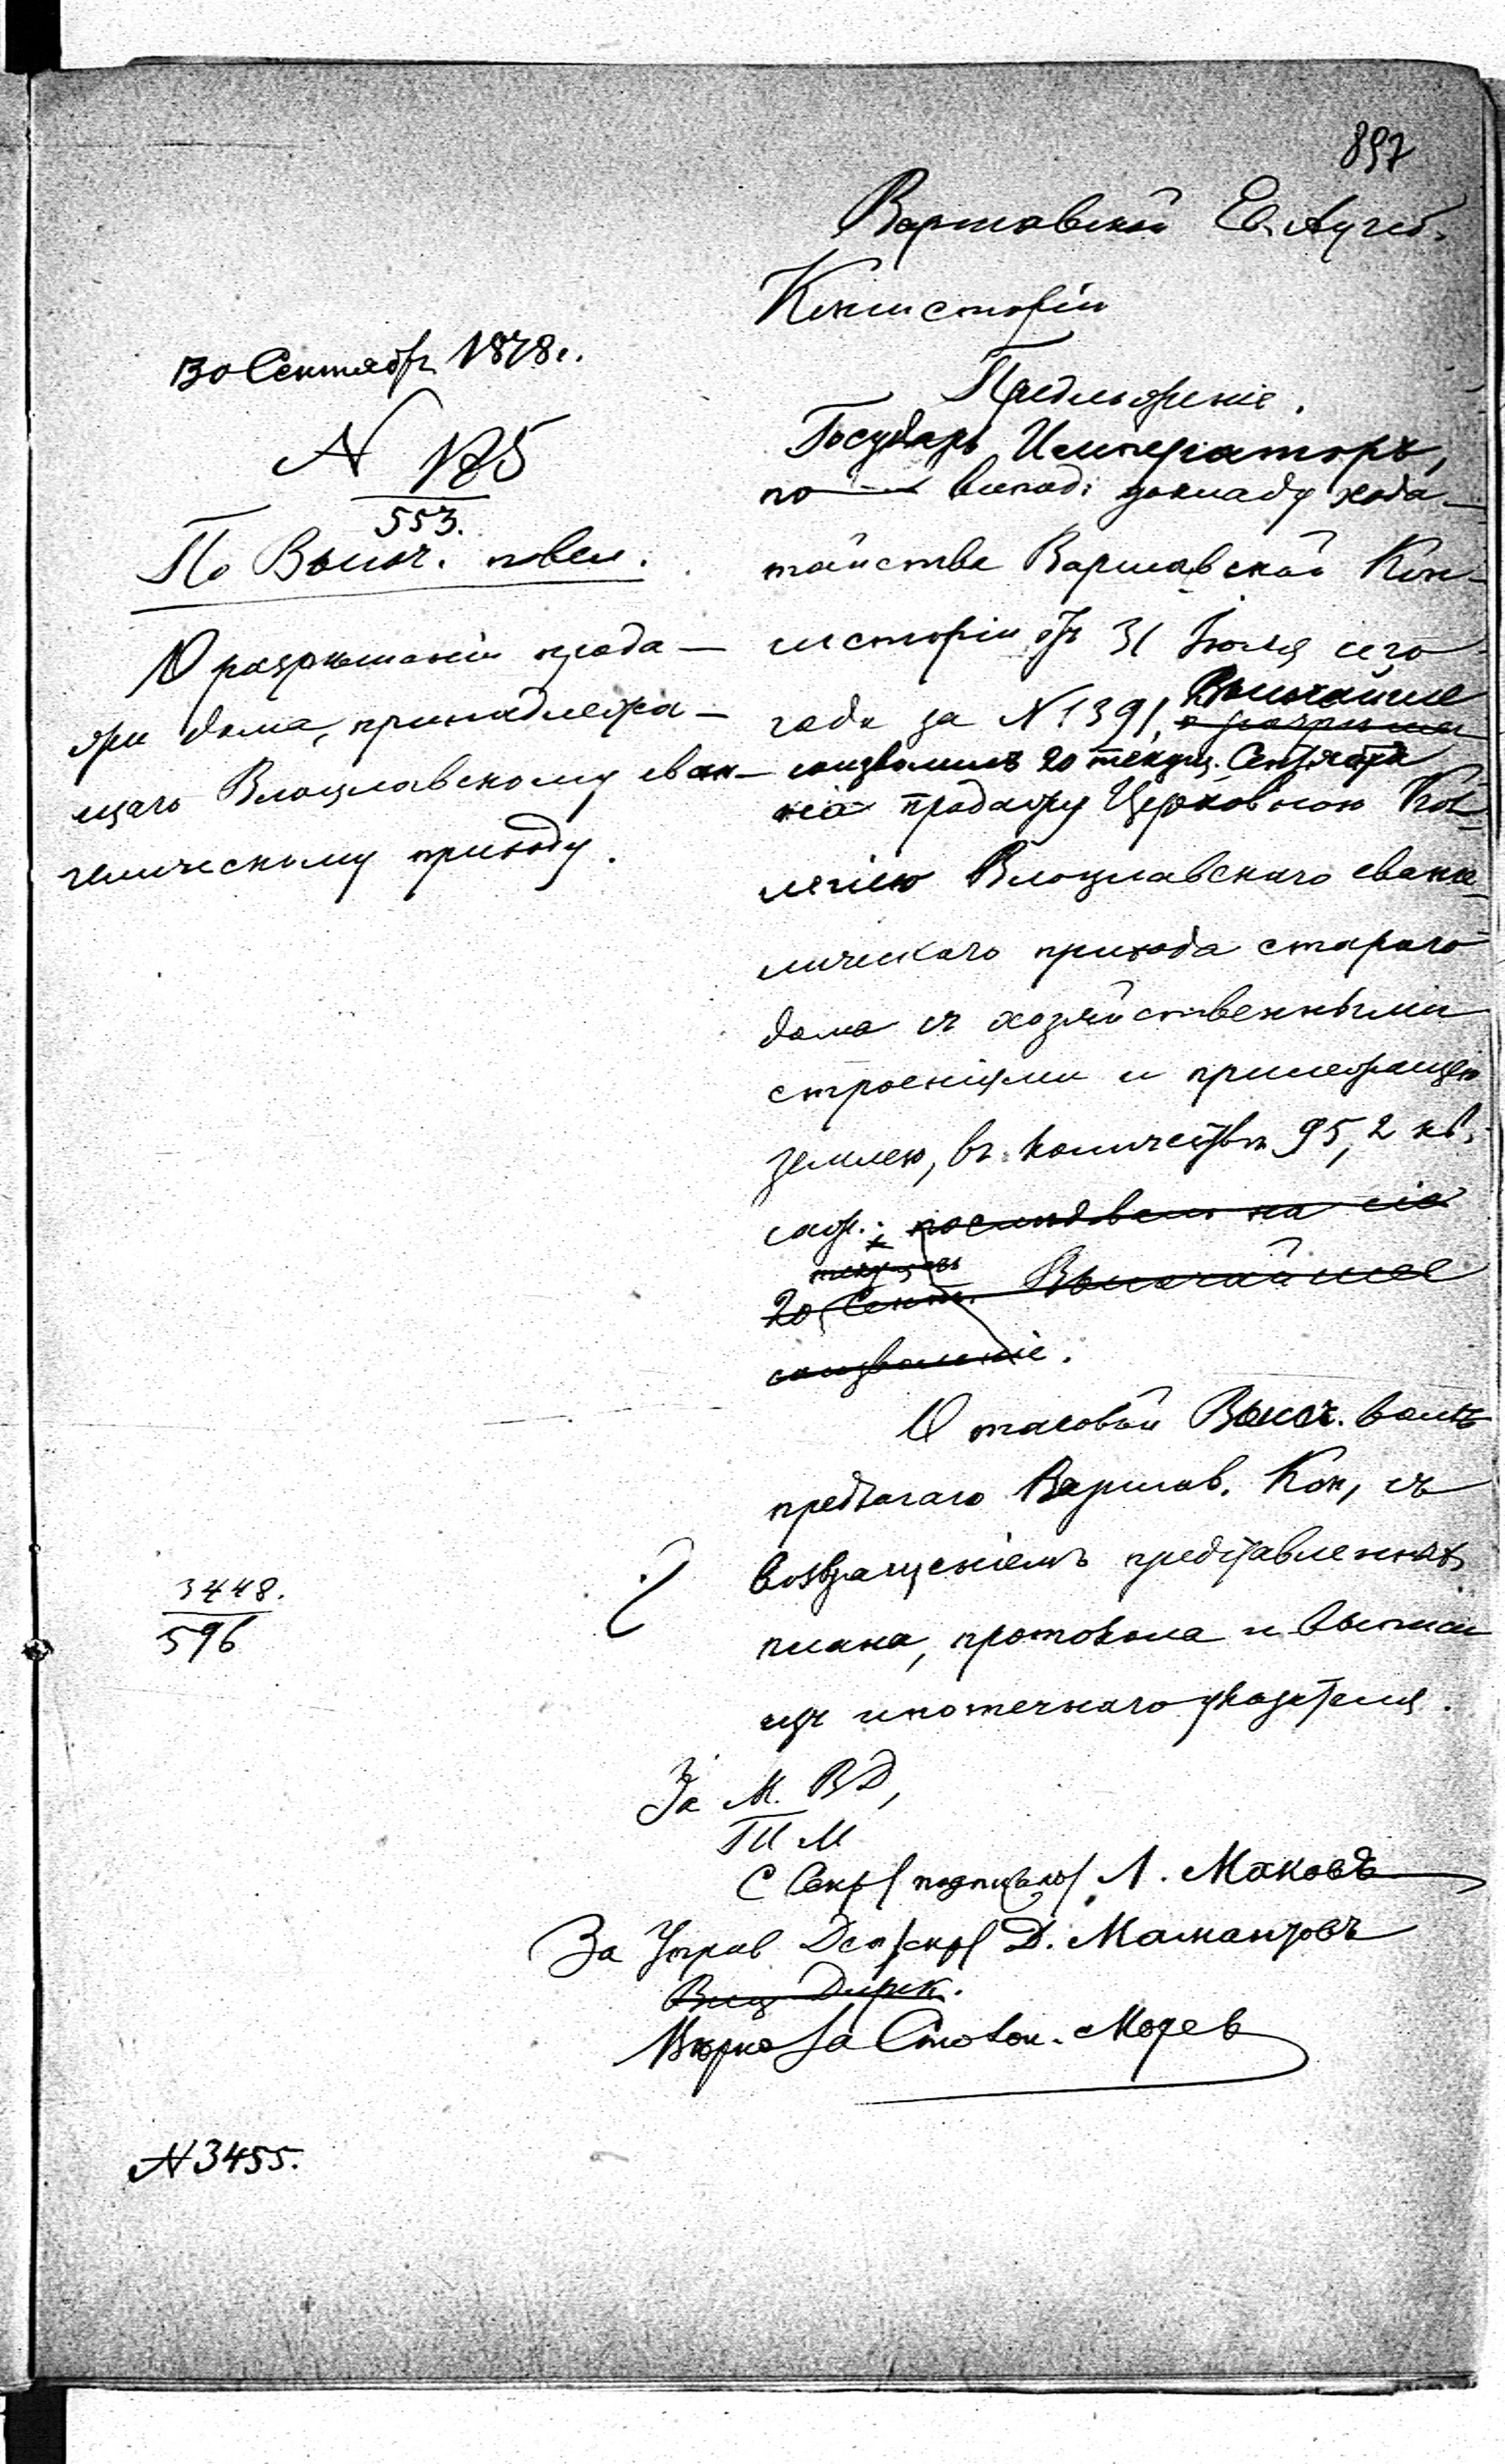 897
Варшавской Ев. Аугсб.
Консисторіи
Предложеніе.
30 Сентября 1878 г.
N 185
553.
По Высоч. повел.
О разрѣшеніи прода-
жи дома, принадлежа-
щаго Влоцлавскому еван-
гелическому приходу.
Государь Императоръ,
по всепод. докладу хода-
тайства Варшавской Кон-
систоріи отъ 31 Іюля сего
года за N 1391, Высочайше
о разрѣше
соизволилъ 20 текущ. Сентября
нія продажу Церковною Кол-
легіею Влоцлавскаго еванге-
лическаго прихода стараго
дома съ хозяйственными
строеніями и прилежащею
землею, въ количествѣ 95,2 кв.
саж. послѣдовало на сіе
текущаго
20 Сент. Высочайшее
соизволеніе.
О таковой Высоч. волѣ
предлагаю Варшав. Кон, съ
возвращеніемъ представленныхъ
плана, протокола и выписи
изъ ипотечнаго указателя.
3448.
596
За М. В Д,
Т М
С Секр. / подписалъ / Л. Маковъ
За Управ Деп / скр / Д. Мамантовъ
Виц Дирек.
Вѣрно За Столон.
N 3455.